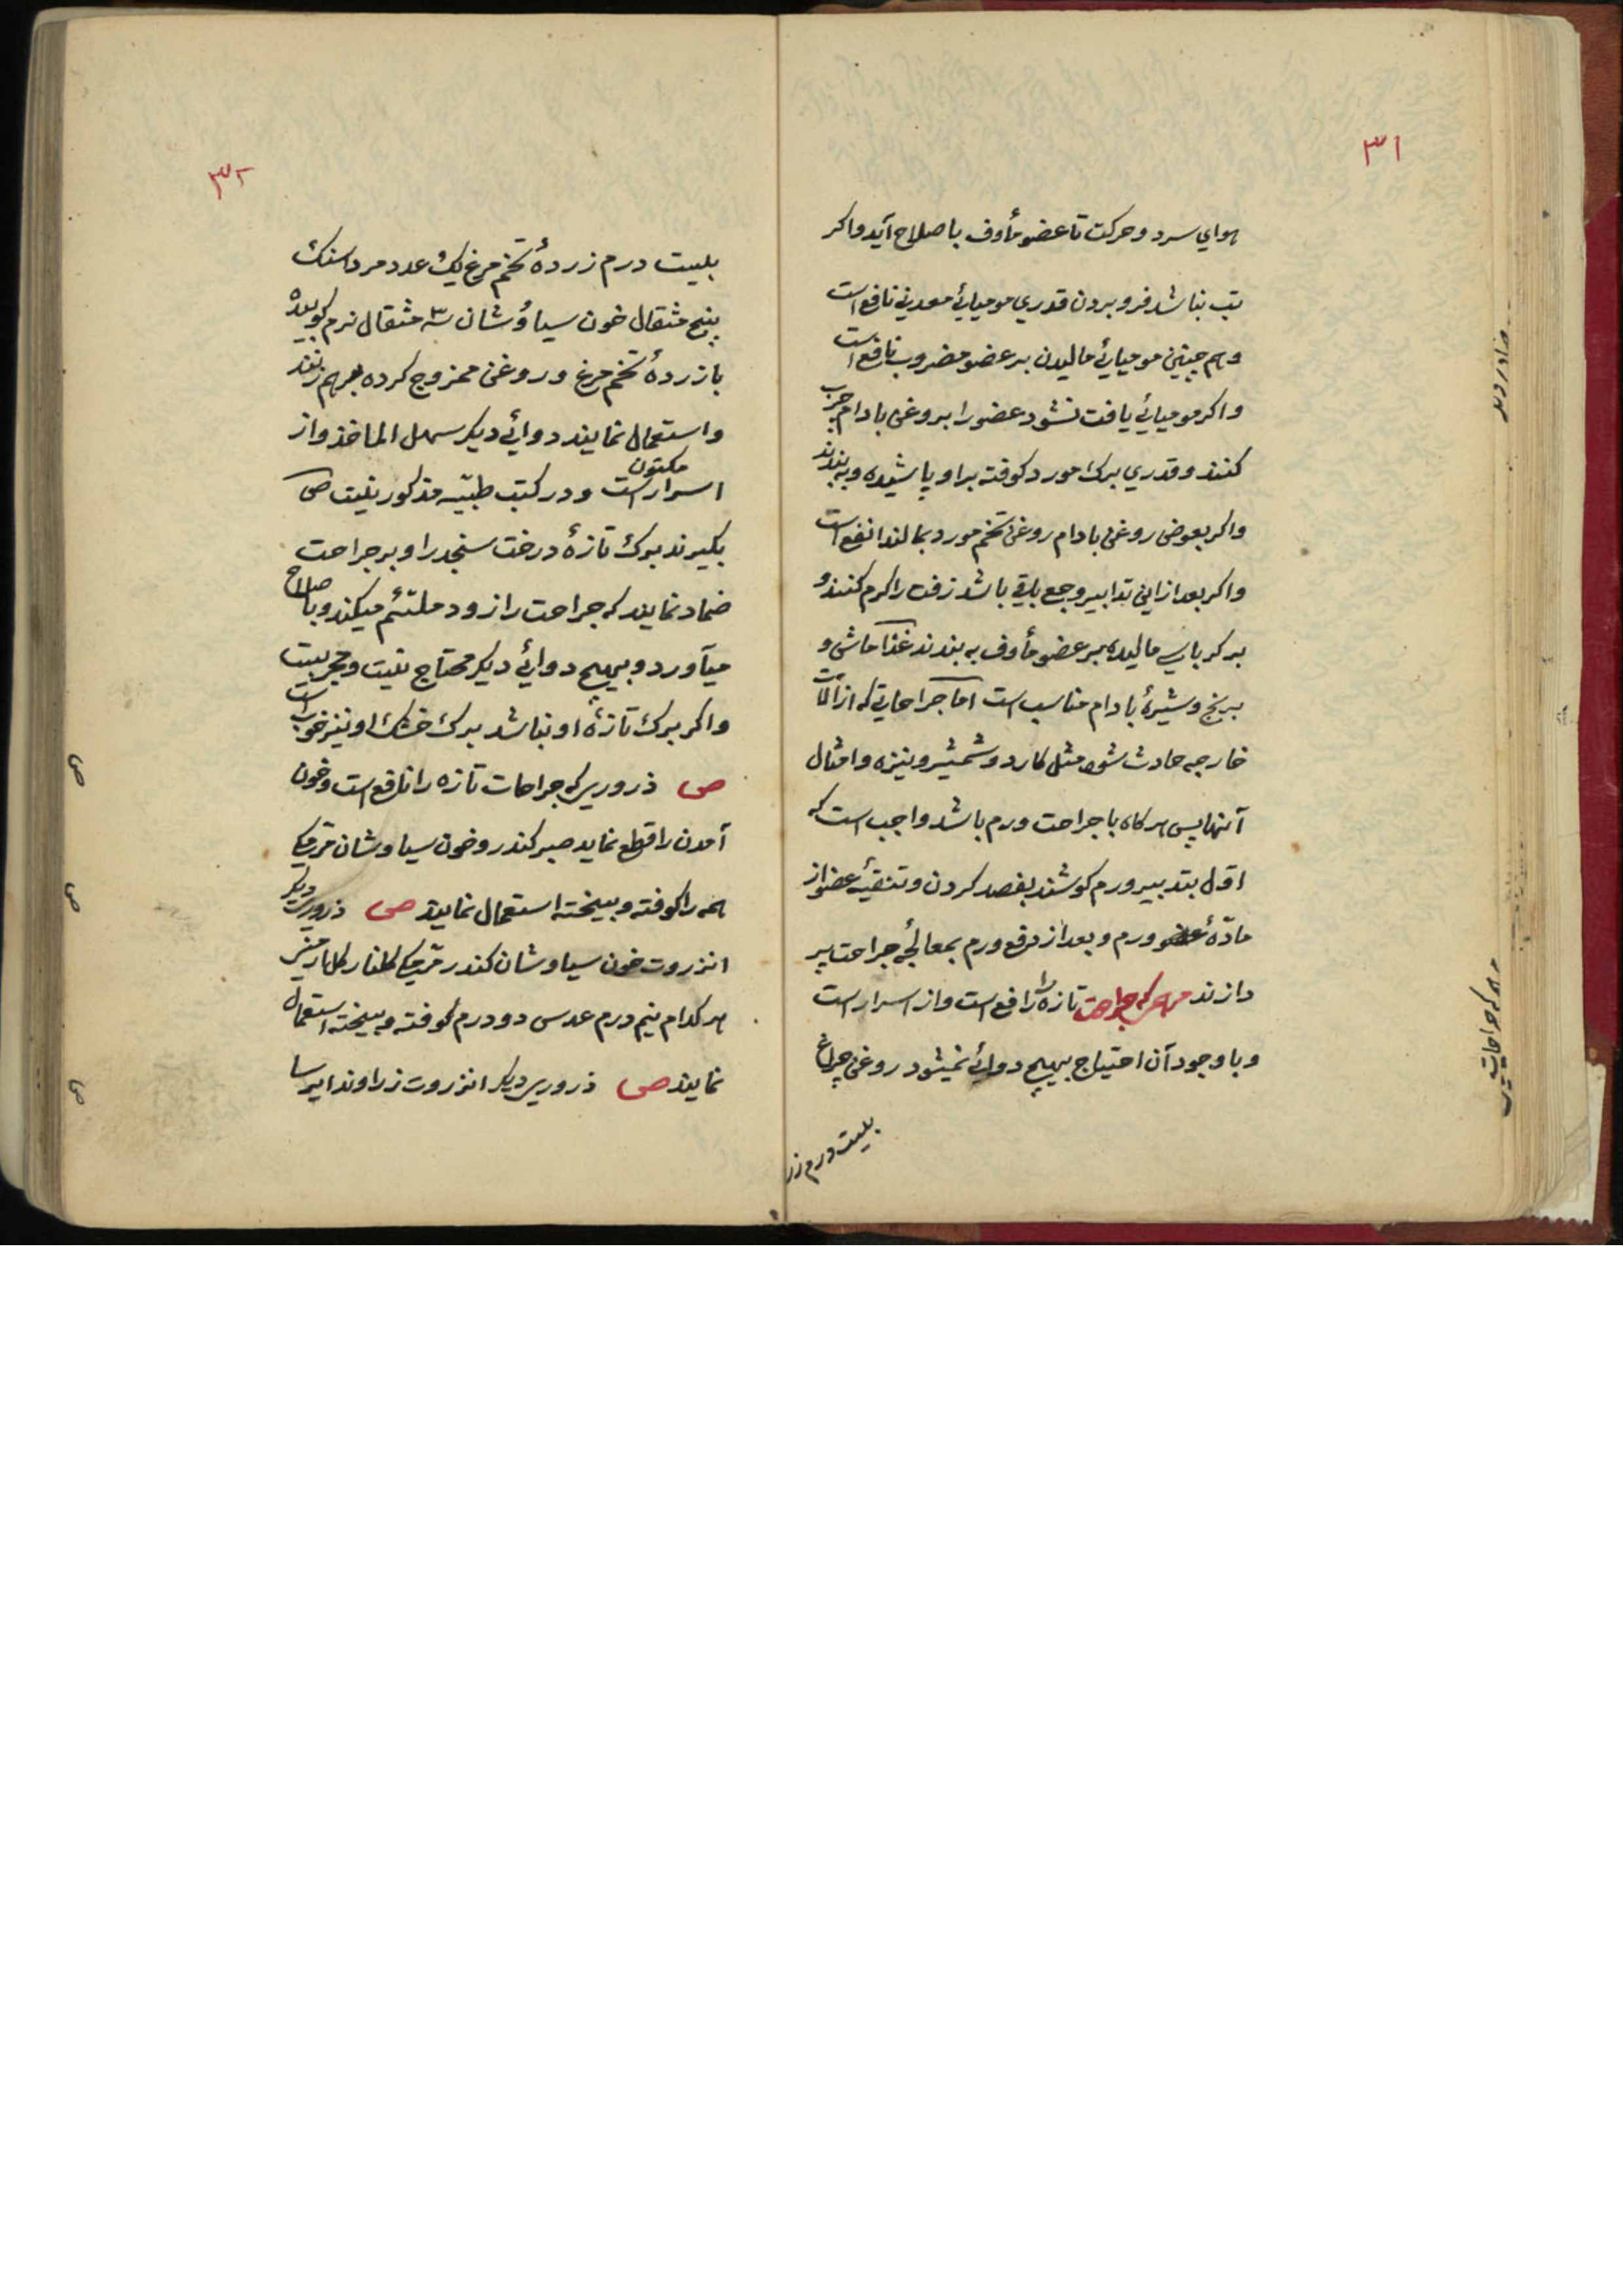 ۳۱
هوای سرد و حرکت تا عضو مأوف باصلاح آید واکر
تب نباشد فرو بردن قدری مومیائی معدنی نافع است
وهم چنین مومیائی مالیدن بر عضو مضروب نافع است
واکر مومیائی یافت نشود عضو را بروغن بادام چرب
کنند وقدری برک مورد کوفته براو پاشیده و به بندند
واکر بعوض روغن بادام روغن تخم مورد بمالند انفع است
واکر بعد از این تدابیر وجع باقی باشد زفت را کرم کنند و
بر کرباسی مالیده بر عضو مأوف به بندند غذا ماش و
برنج وشیرهٔ بادام مناسب است اما جراحاتی که از آلات
خارجه حادث شود مثل کارد وشمشیر ونیزه وامثال
آنها پس هرکاه با جراحت ورم باشد واجب است که
اول بتدبیر ورم کوشند بفصد کردن وتنقیهٔ عضو از
مادهٔ ورم و بعد از رفع ورم بمعالجهٔ جراحت پر
دازند مرهمی که جراحت تازه را نافع است واز اسرار است
وبا وجود آن احتیاج بهیچ دوائی نمیشود روغن چراغ
بیست درم زر
۳۲
بیست درم زردهٔ تخم مرغ یک عدد مرداسنک
پنج مثقال خون سیاوشان سه مثقال نرم کوبیده
با زردهٔ تخم مرغ وروغن ممزوج کرده برهم زنند
واستعمال نمایند دوائی دیکر سهل الماخذ واز
اسرار مکتون است ودر کتب طبیه مذکور نیست ص
بکیرند برک تازهٔ درخت سنجد را و بر جراحت
ضماد نمایند که جراحت را زود ملتئم میکند و باصلاح
میآورد و بهیچ دوائی دیکر محتاج نیست ومجربست
واکر برک تازهٔ او نباشد برک خشک او نیز خوب است
ص ذروری که جراحات تازه را نافع است وخون
آمدن را قطع نماید صبر کندر وخون سیاوشان مرمکی
همه را کوفته وبیخته استعمال نمایند ص ذروریست دیکر
انزروت خون سیاوشان کندر مرمکی کلنار کل ارمنی
هر کدام نیم درم عدس دو درم کوفته و بیخته استعمال
نمایند ص ذروری دیکر انزروت زراوند ایرسا
ص
ص
ص